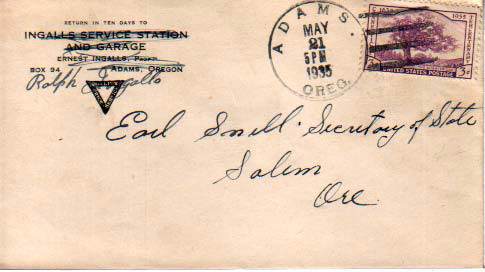 RETURN IN TEN DAYS TO
INGALLS SERVICE STATION
AND GARAGE
ERNEST INGALLS, PROP'R.
BOX 94 ADAMS, OREGON
Ralph Ingalls
ADAMS.
MAY
21
5PM
1935
OREG.
1635 1935
CONNECTICUT TERCENTENARY
UNITED STATES POSTAGE
3¢
Earl Snell - Secretary of State
Salem
Ore